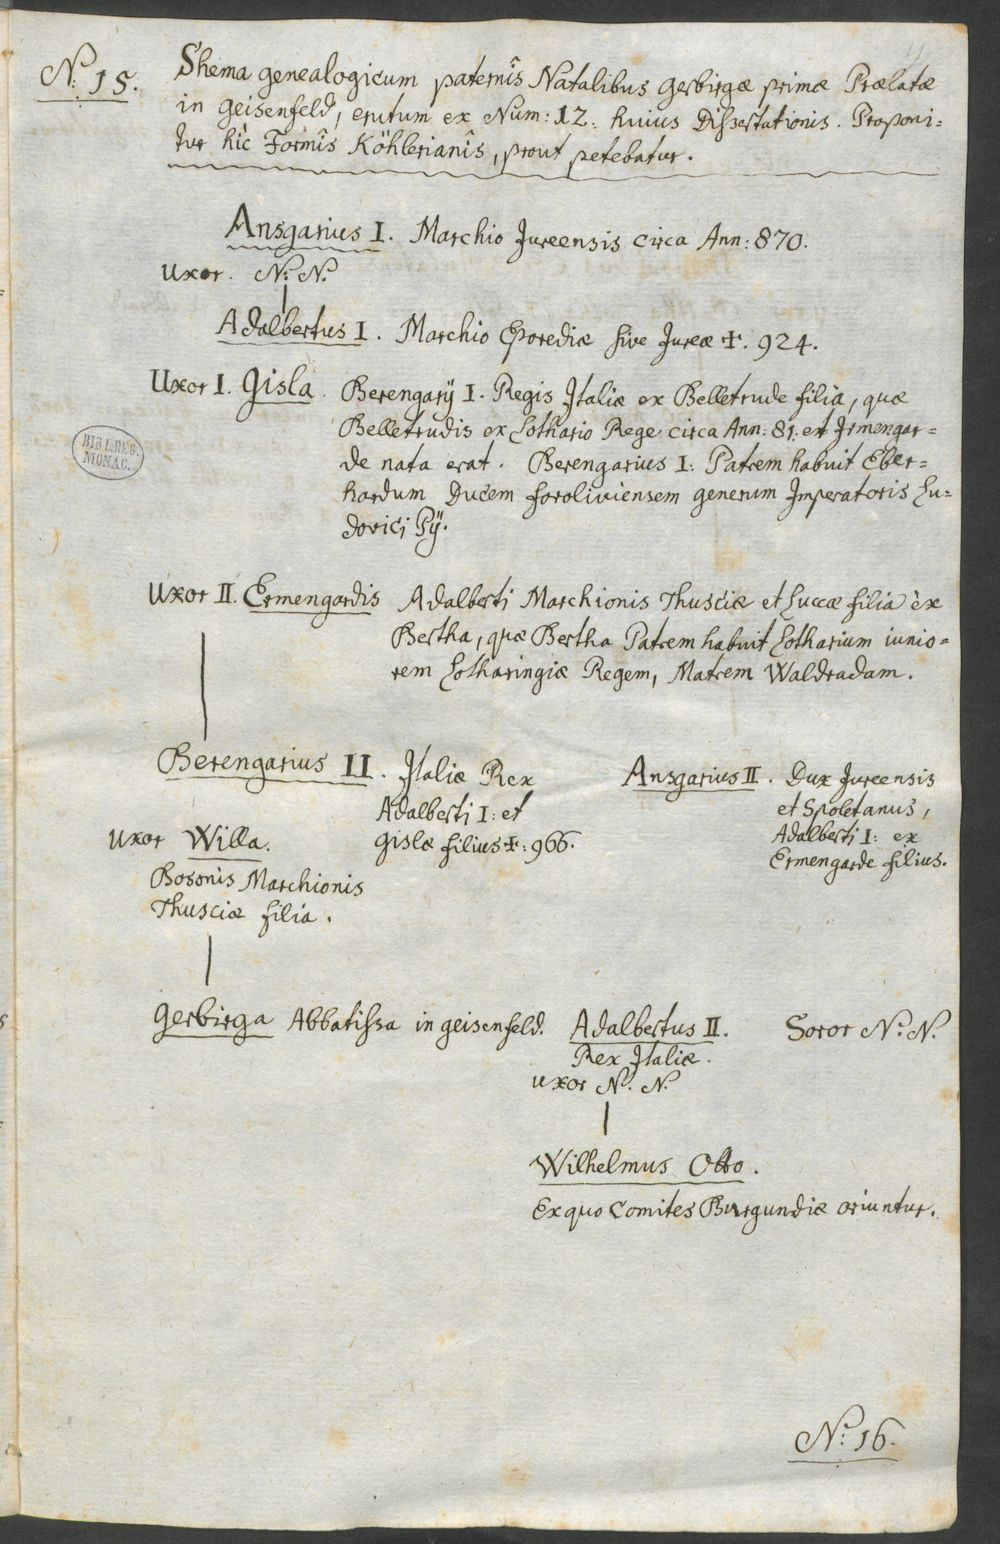 N.° 15.
Shema genealogicum paternîs Natalibus Gerbirgæ primæ Prælatæ
in Geisenfeld, erutum ex Num: 12. huius Dissertationis. Proponi-
tur hîc Formîs Köhlerianîs, prout petebatur.
Ansgarius I. Marchio Jureensis circa Ann: 870.
Uxor. N. N.
Adalbertus I. Marchio Eporediæ sive Jureæ +. 924.
Uxor I. Gisla. Berengarÿ I. Regis Italiæ ex Belletrude filia, quæ
Belletrudis ex Lothario Rege circa Ann: 81. et Irmengar=
de nata erat. Berengarius I: Patrem habuit Eber=
hardum Ducem foroliviensem generum Imperatoris Lu=
dovici Pÿ.
BIBL. REG.
MONAC.
Uxor II. Ermengardis Adalberti Marchionis Thusciæ et Luccæ filia ex
Bertha, quæ Bertha Patrem habuit Lotharium iunio=
rem Lotharingiæ Regem, Matrem Waldradam.
Berengarius II. Italiæ Rex
Adalberti I: et
Gislæ filius +: 966.
Ansgarius II. Dux Jureensis
et Spoletanus,
Adalberti I: ex
Ermengarde filius.
Uxor Willa.
Bosonis Marchionis
Thusciæ filia.
Gerbirga Abbatissa in Geisenfeld. Adalbertus II. Soror N. N.
Rex Italiæ.
uxor N. N.
Wilhelmus Otto.
Ex quo Comites Burgundiæ oriuntur.
N.° 16.